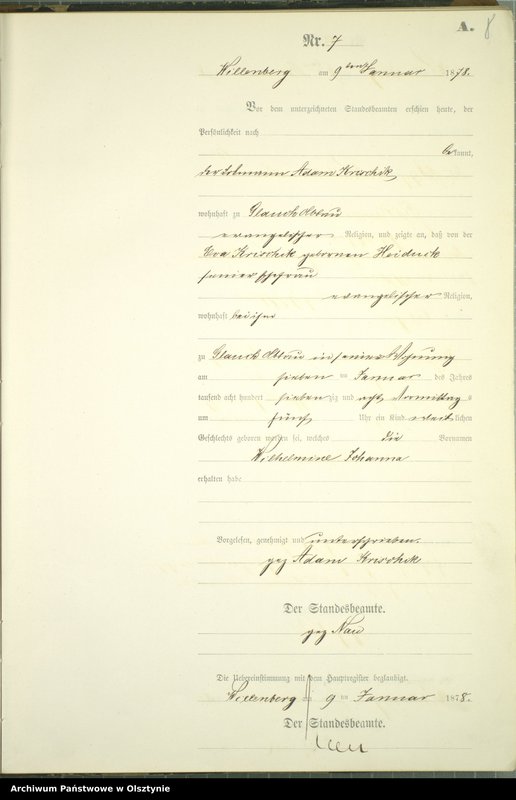 A. 8
Nr. 7
Willenberg am 9ten Januar 1878.
Vor dem unterzeichneten Standesbeamten erschien heute, der
Persönlichkeit nach
bekannt,
der Adam Krischik
wohnhaft zu Glauch
evangelischer Religion, und zeigte an, daß von der
Eva Krischik geborenen Heiduck
seiner Ehefrau
evangelischer Religion,
wohnhaft bei ihm
zu Glauch in seiner Wohnung
am sieben ten Januar des Jahres
tausend acht hundert sieben zig und acht Vormittags
um fünf Uhr ein Kind weiblichen
Geschlechts geboren worden sei, welches die Vornamen
Wilhelmine Johanna
erhalten habe
Vorgelesen, genehmigt und unterschrieben.
gez Adam Krischik
Der Standesbeamte.
gez Nau
Die Uebereinstimmung mit dem Hauptregister beglaubigt.
Willenberg am 9 ten Januar 1878.
Der Standesbeamte.
Archiwum Państwowe w Olsztynie